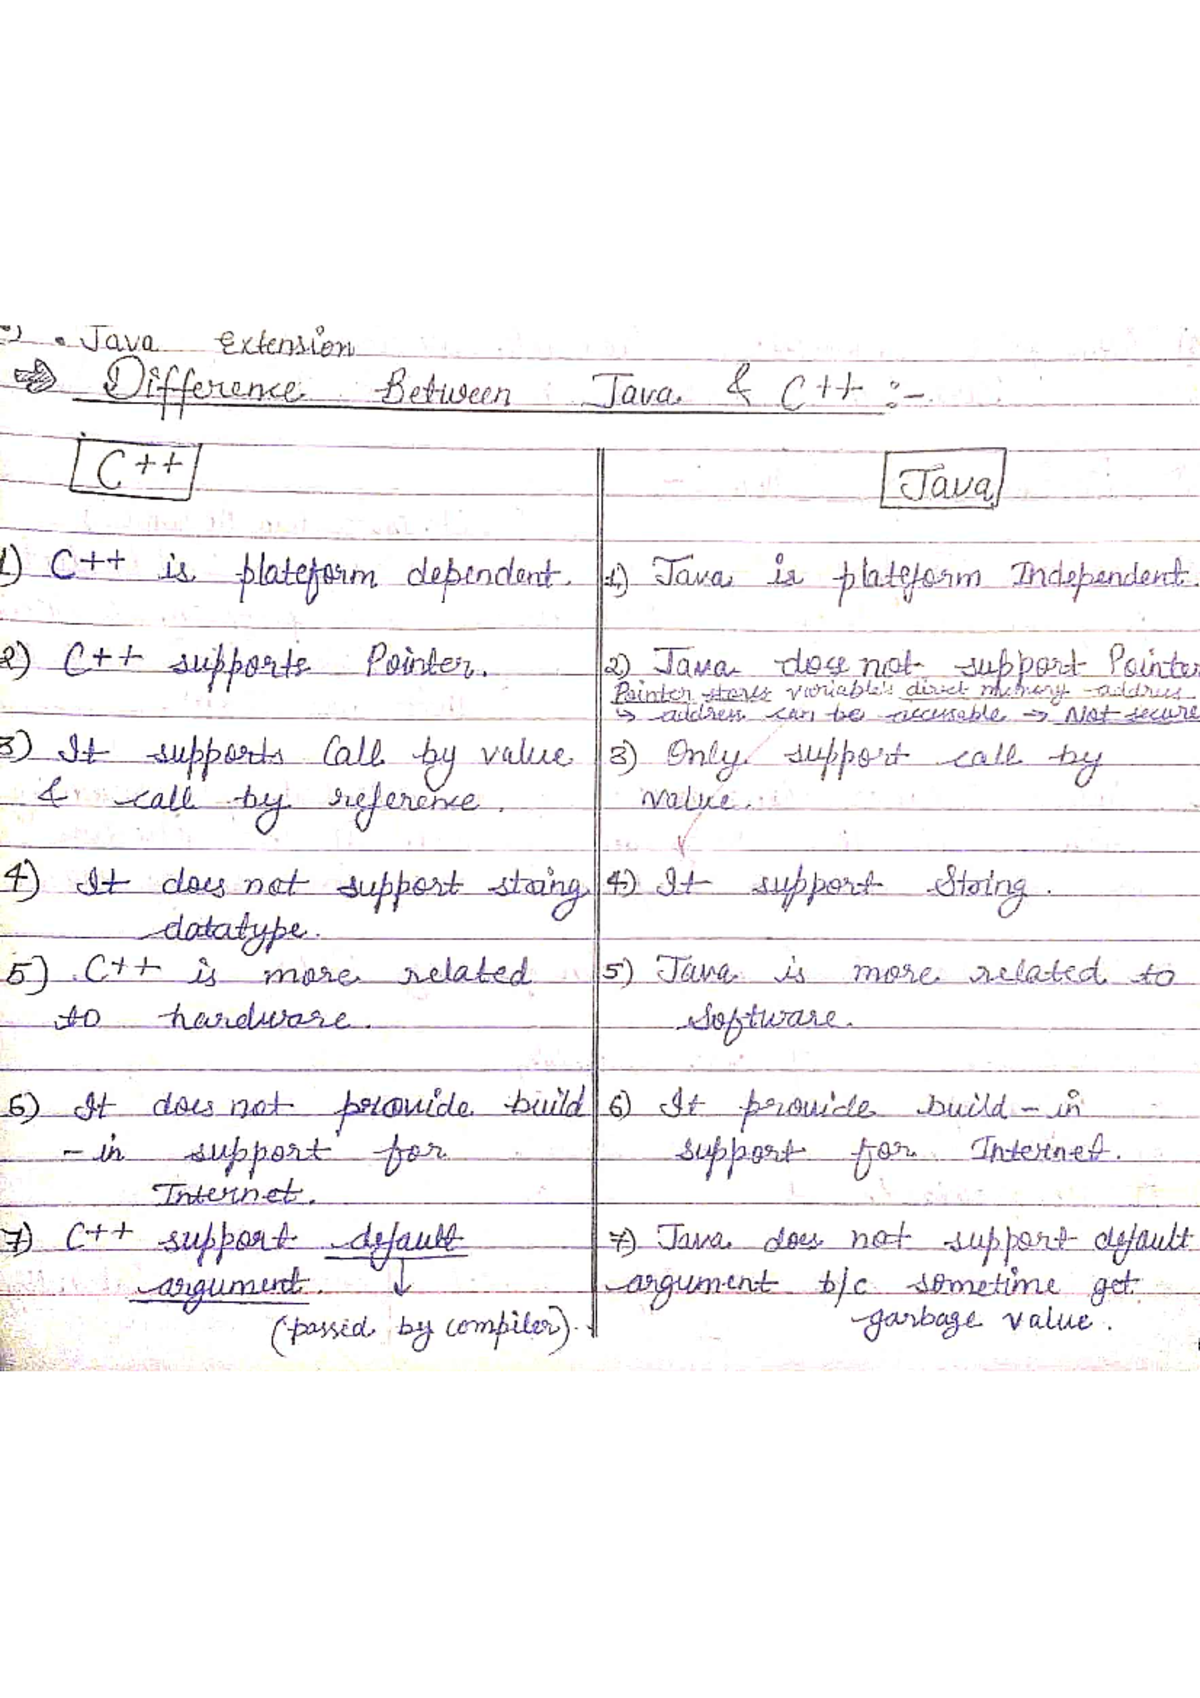 • Java Extension
Difference Between Java & C++ :-
C++
Java
1) C++ is plateform dependent.
1) Java is plateform Independent.
2) C++ supports Pointer.
2) Java does not support Pointer
Pointer stores variable's direct memory address
↳ address can be accessable → Not secure
3) It supports Call by value
& call by reference.
3) Only support call by
value.
4) It does not support string
datatype.
4) It support String.
5) C++ is more related
to hardware.
5) Java is more related to
Software.
6) It does not provide build
-in support for
Internet.
6) It provide build-in
support for Internet.
7) C++ support default
argument.
(passed by compiler).
7) Java does not support default
argument b/c sometime get
garbage value.